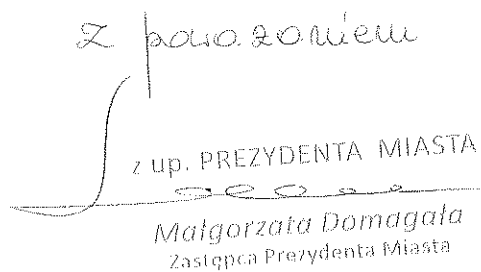 Z poważaniem
z up. PREZYDENTA MIASTA
Małgorzata Domagała
Zastępca Prezydenta Miasta